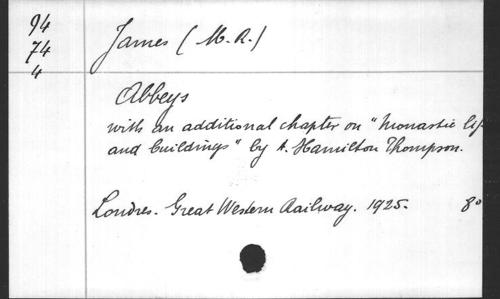 94
74
4
James (M. R.)
Abbeys
with an additional chapter on "Monastic
and buildings" by A. Hamilton Thompson.
Londres. Great Western Railway. 1925. 8º